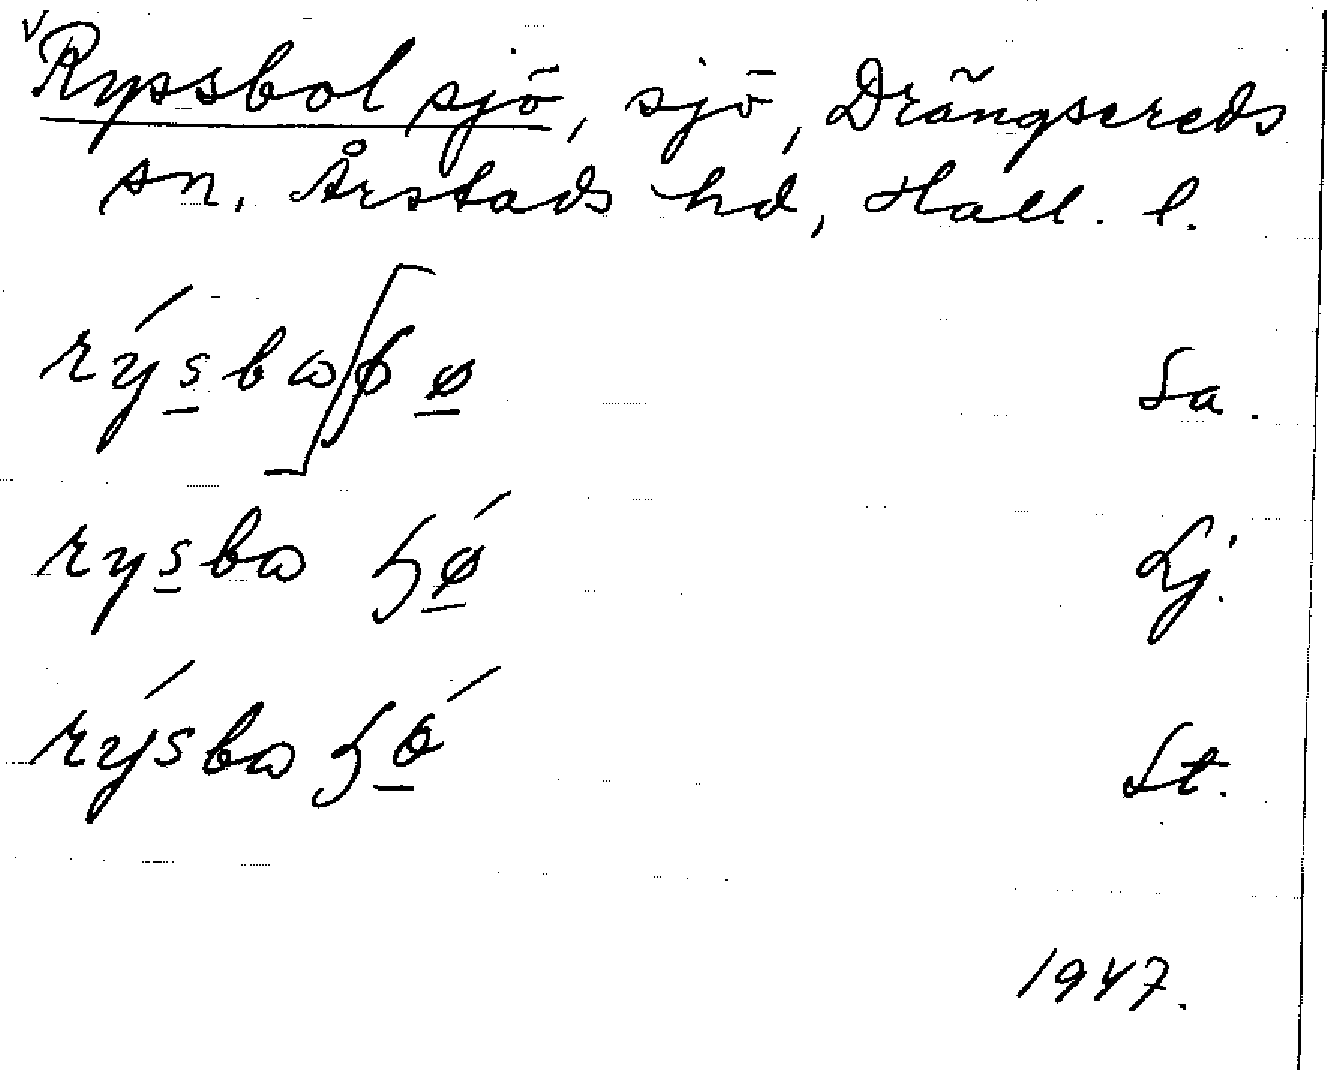 v Ryssbol sjö, sjö, Drängsereds
sn. Årstads hd, Hall. l.
rýsbω Sa.
rysbω ɧǿ Lj.
rýsbω ɧǿ St.
1947.